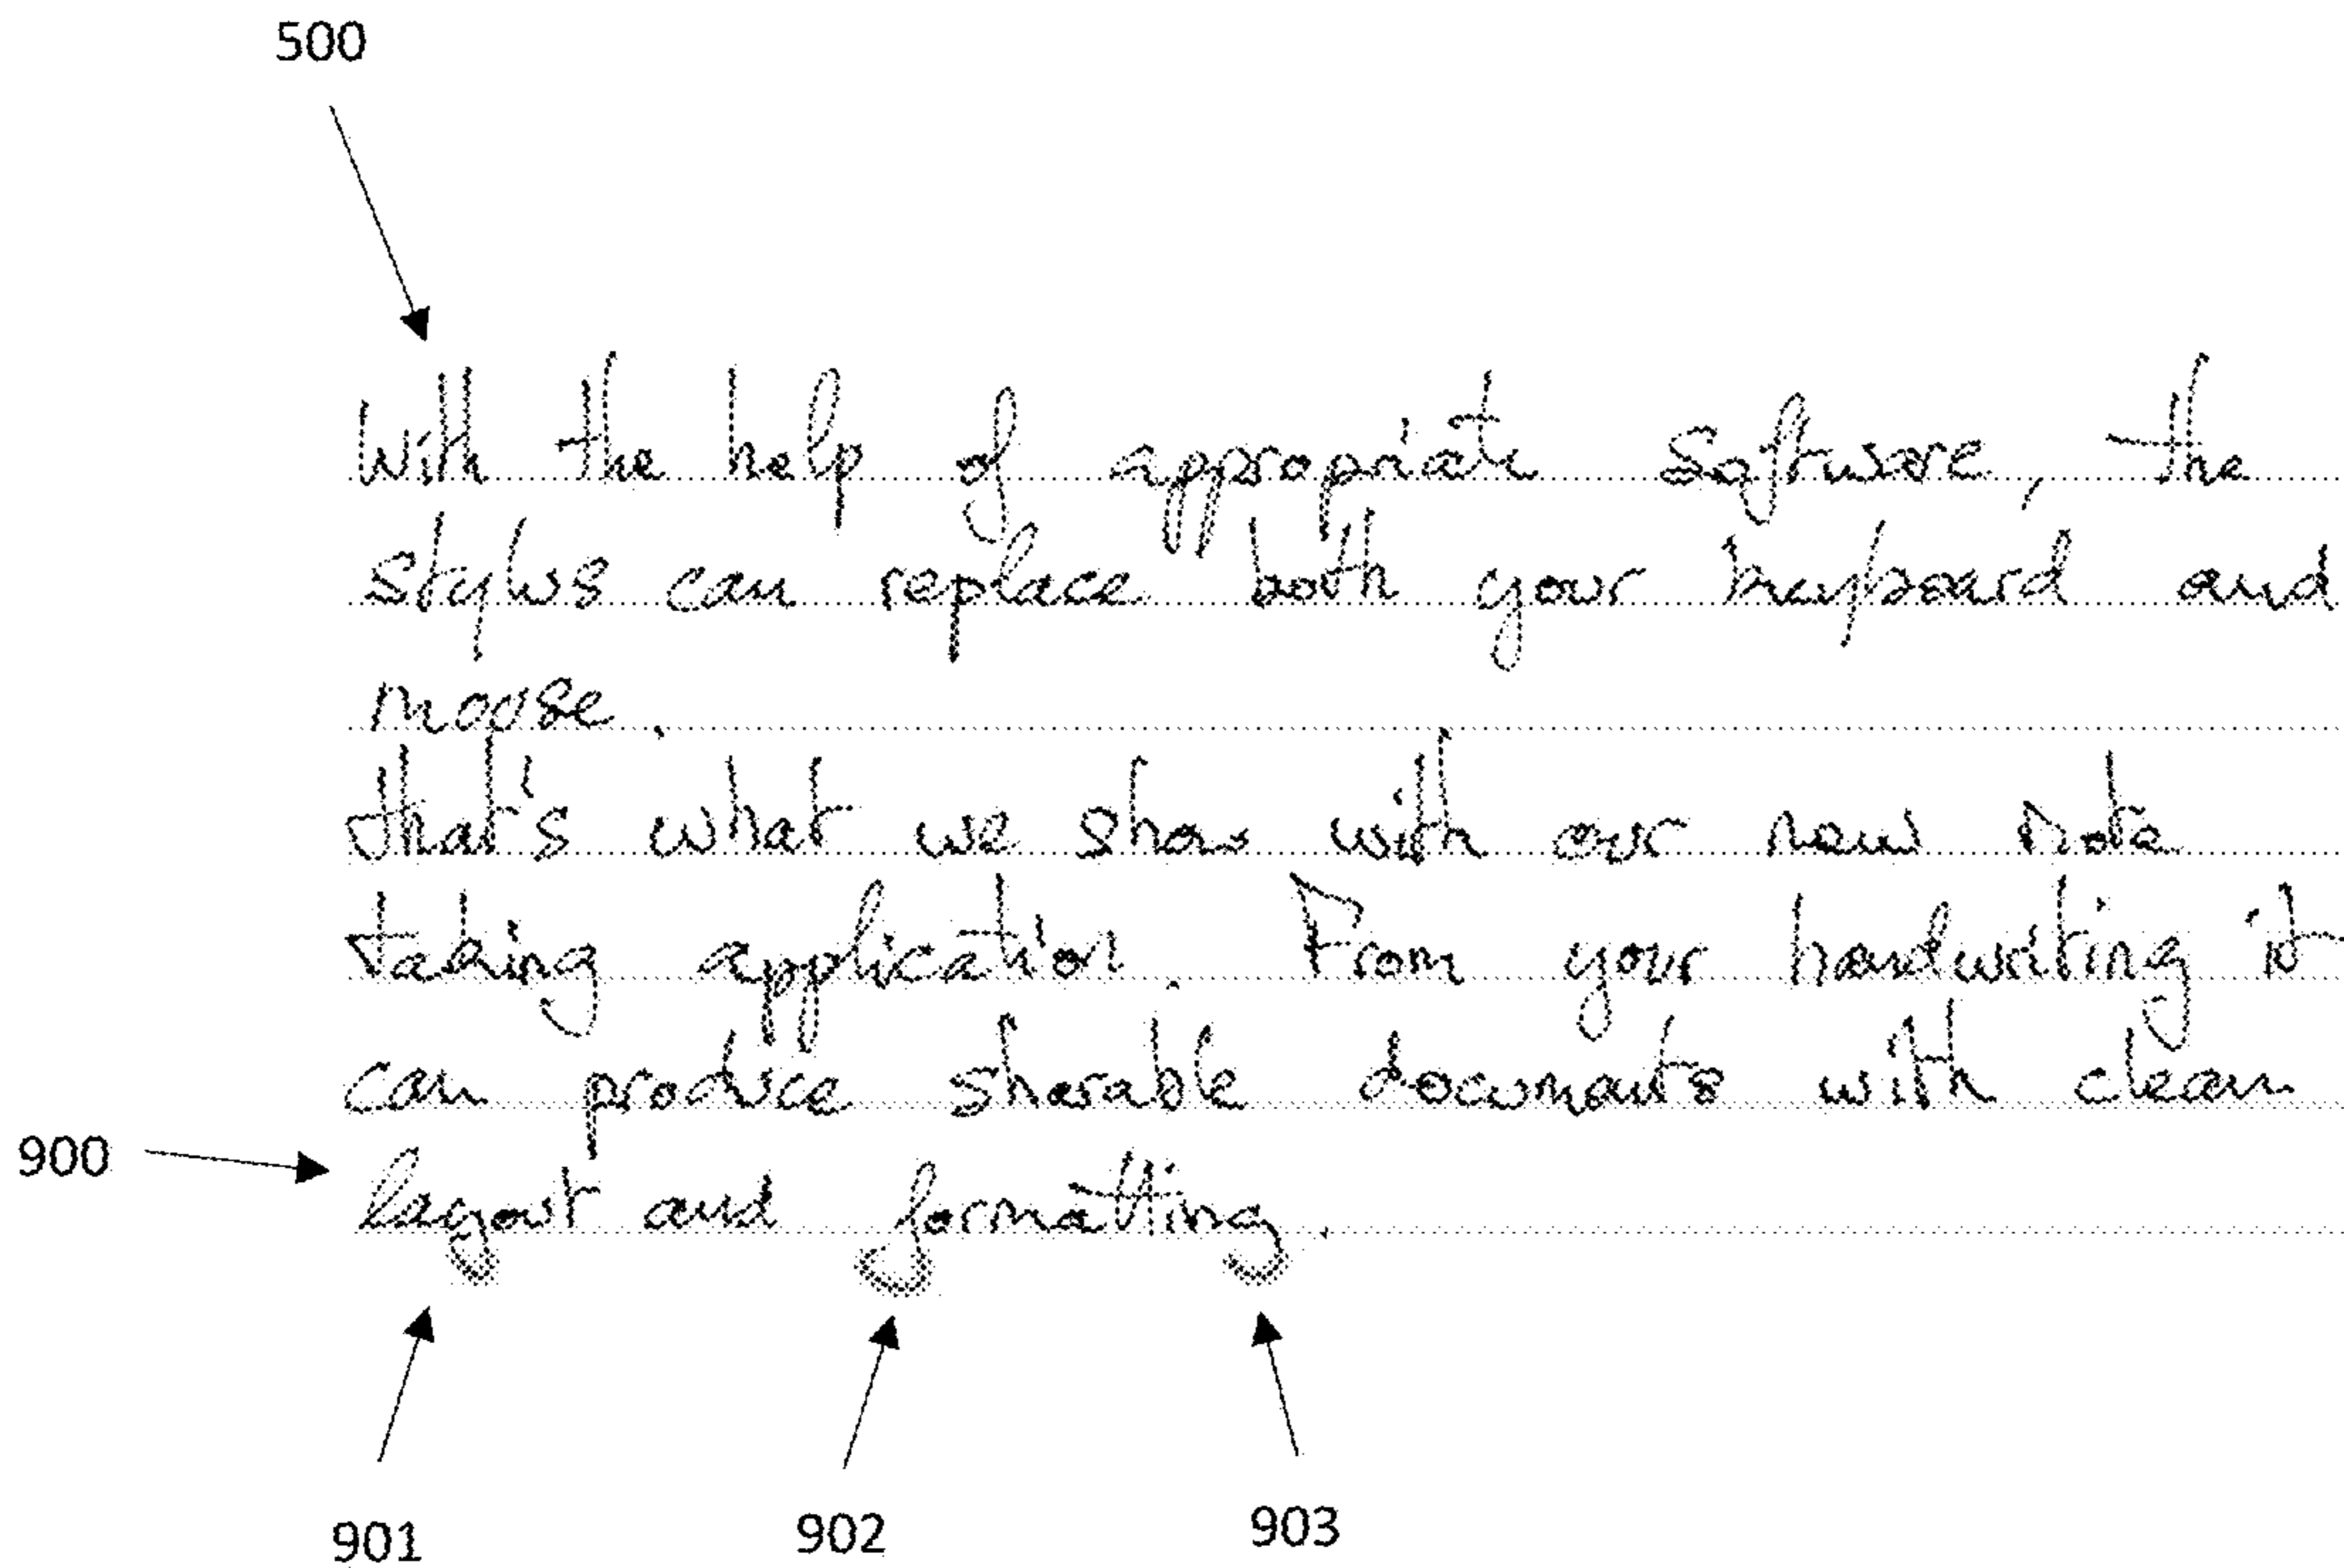 500
With the help of appropriate software, the
stylus can replace both your keyboard and
moose.
that's what we show with our new note
taking application. From your handwriting it
can produce sharable documents with clean
900
layout and formatting.
901 902 903